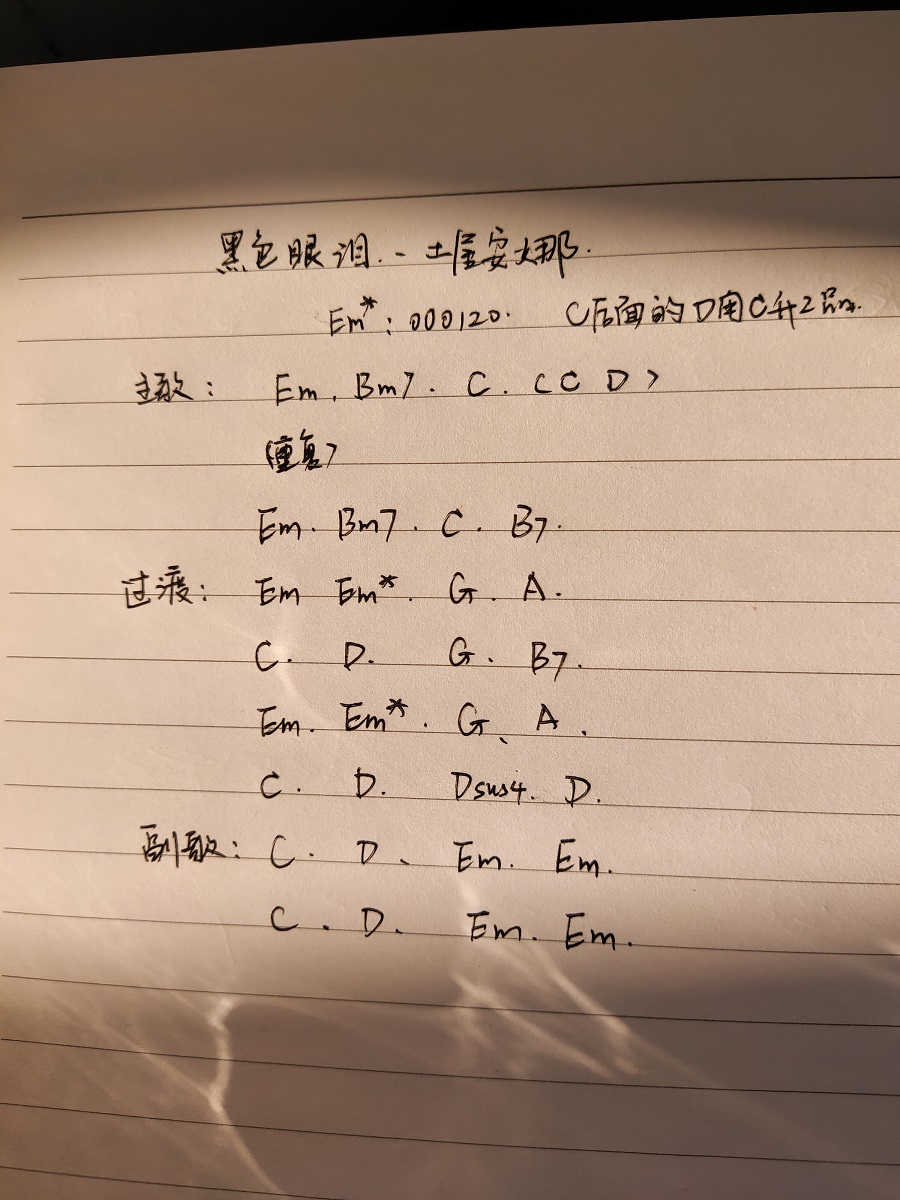 黑色眼泪.-土屋安娜.
Em*:000120. C后面的D用C升2品.
主歌: Em. Bm7. C. (C D)
(重复)
Em. Bm7. C. B7.
过渡: Em Em*. G. A.
C. D. G. B7.
Em. Em*. G、A.
C. D. Dsus4. D.
副歌: C. D、Em. Em.
C. D. Em. Em.